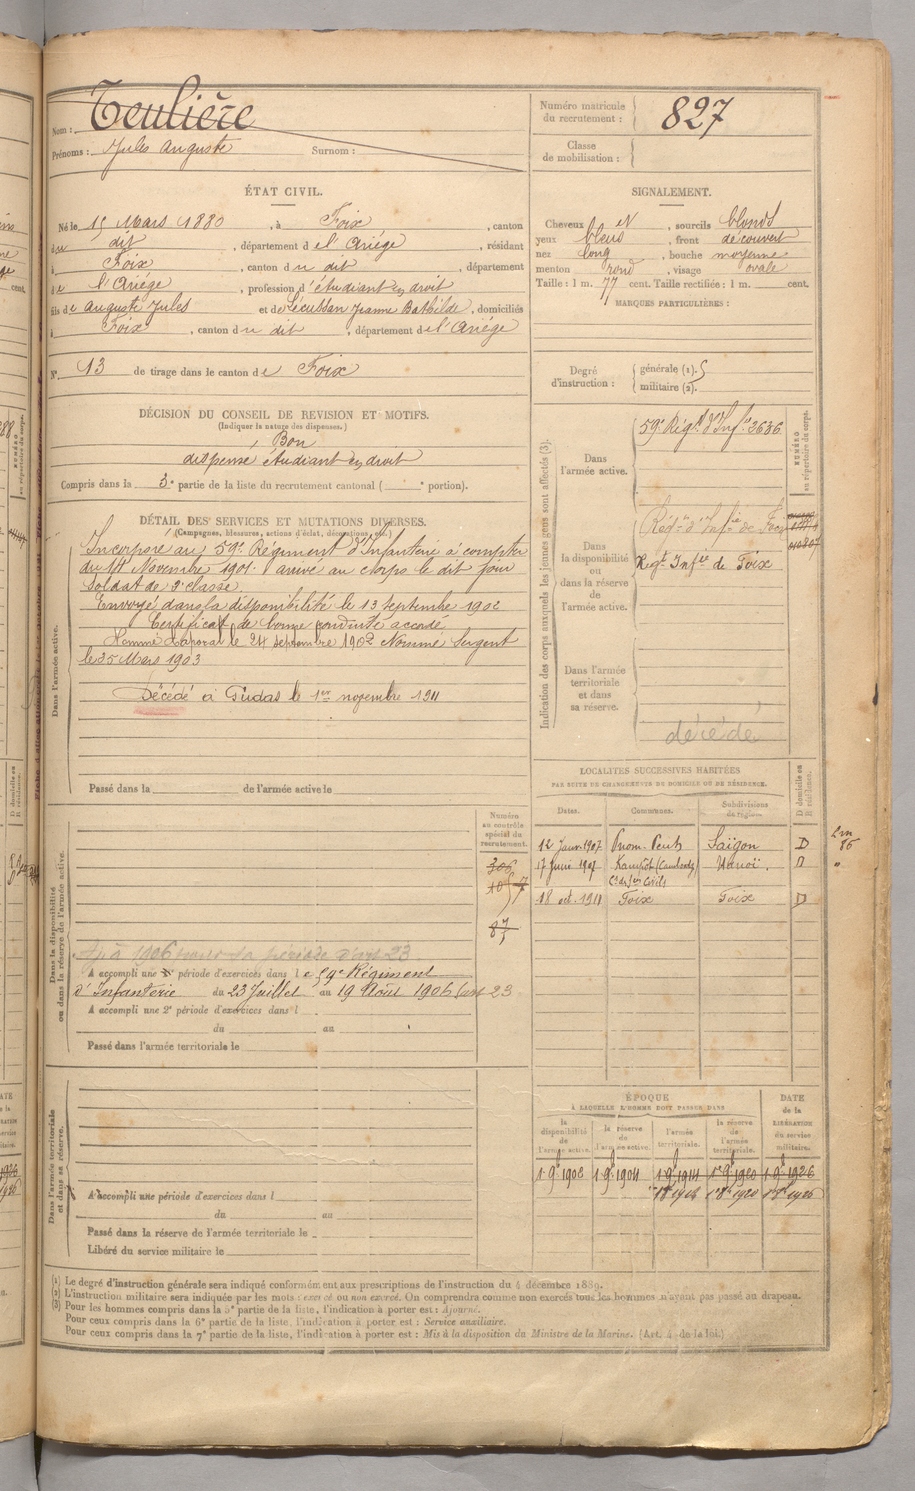 Nom : Teulière
Prénoms : Jules Auguste Surnom :
Numéro matricule du recrutement : 827
Classe de mobilisation :
ÉTAT CIVIL.
Né le 15 Mars 1880, à Foix, canton
du dit, département de l'Ariége, résidant
à Foix, canton du dit, département
de l'Ariége, profession d'étudiant en droit
fils de Auguste Jules et de Lécussan Jeanne Bathilde, domiciliés
à Foix, canton du dit, département de l'Ariége
N° 13 de tirage dans le canton de Foix
SIGNALEMENT.
Cheveux et, sourcils blonds
yeux bleus, front découvert
nez long, bouche moyenne
menton rond, visage ovale
Taille : 1 m. 77 cent. Taille rectifiée : 1 m. cent.
MARQUES PARTICULIÈRES :
Degré d'instruction : générale (1). 5
militaire (2).
DÉCISION DU CONSEIL DE REVISION ET MOTIFS.
(Indiquer la nature des dispenses.)
Bon
dispensé étudiant en droit
Compris dans la 3e partie de la liste du recrutement cantonal ( e portion).
DÉTAIL DES SERVICES ET MUTATIONS DIVERSES.
(Campagnes, blessures, actions d'éclat, décorations, etc.)
Dans l'armée active.
Incorporé au 59e Régiment d'Infanterie à compter
du 14 Novembre 1901. arrivé au corps le dit jour
Soldat de 2e classe.
Envoyé dans la disponibilité le 13 septembre 1902
Certificat de bonne conduite accordé
Nommé Caporal le 24 septembre 1902 Nommé Sergent
le 25 Mars 1903
Décédé à Gudas le 1er novembre 1911
Passé dans la de l'armée active le
Indication des corps auxquels les jeunes gens sont affectés (3).
NUMÉRO au répertoire du corps.
Dans l'armée active.
59e Régt d'Infie 3636
Dans la disponibilité ou dans la réserve de l'armée active.
Régt d'Infie de Foix
Régt Infie de Foix
Dans l'armée territoriale et dans sa réserve.
décédé
LOCALITÉS SUCCESSIVES HABITÉES
PAR SUITE DE CHANGEMENTS DE DOMICILE OU DE RÉSIDENCE.
Dates. Communes. Subdivisions de région. D domicile ou R résidence.
12 Janv 1907 Pnom-Penh Saïgon D
17 Juin 1907 Kampôt (Cambodge) Hanoï. D
Cs des Ser Civils
18 oct. 1911 Foix Foix D
Dans la disponibilité ou dans la réserve de l'armée active.
Numéro au contrôle spécial du recrutement.
306
87
A accompli une 1e période d'exercices dans le 59e Régiment
d'Infanterie du 23 Juillet au 19 Août 1906 (art 23
A accompli une 2e période d'exercices dans l
du au
Passé dans l'armée territoriale le
Dans l'armée territoriale et dans sa réserve.
A accompli une période d'exercices dans l
du au
Passé dans la réserve de l'armée territoriale le
Libéré du service militaire le
ÉPOQUE
À LAQUELLE L'HOMME DOIT PASSER DANS
DATE de la LIBÉRATION du service militaire.
la disponibilité de l'armée active. la réserve de l'armée active. l'armée territoriale. la réserve de l'armée territoriale.
1 9 1902 1 9 1904 1 9 1914 1 9 1920 1 9 1926
(1) Le degré d'instruction générale sera indiqué conformément aux prescriptions de l'instruction du 4 décembre 1889.
(2) L'instruction militaire sera indiquée par les mots exercé ou non exercé. On comprendra comme non exercés tous les hommes n'ayant pas passé au drapeau.
(3) Pour les hommes compris dans la 5e partie de la liste, l'indication à porter est : Ajourné.
Pour ceux compris dans la 6e partie de la liste, l'indication à porter est : Service auxiliaire.
Pour ceux compris dans la 7e partie de la liste, l'indication à porter est : Mis à la disposition du Ministre de la Marine. (Art. 4 de la loi.)